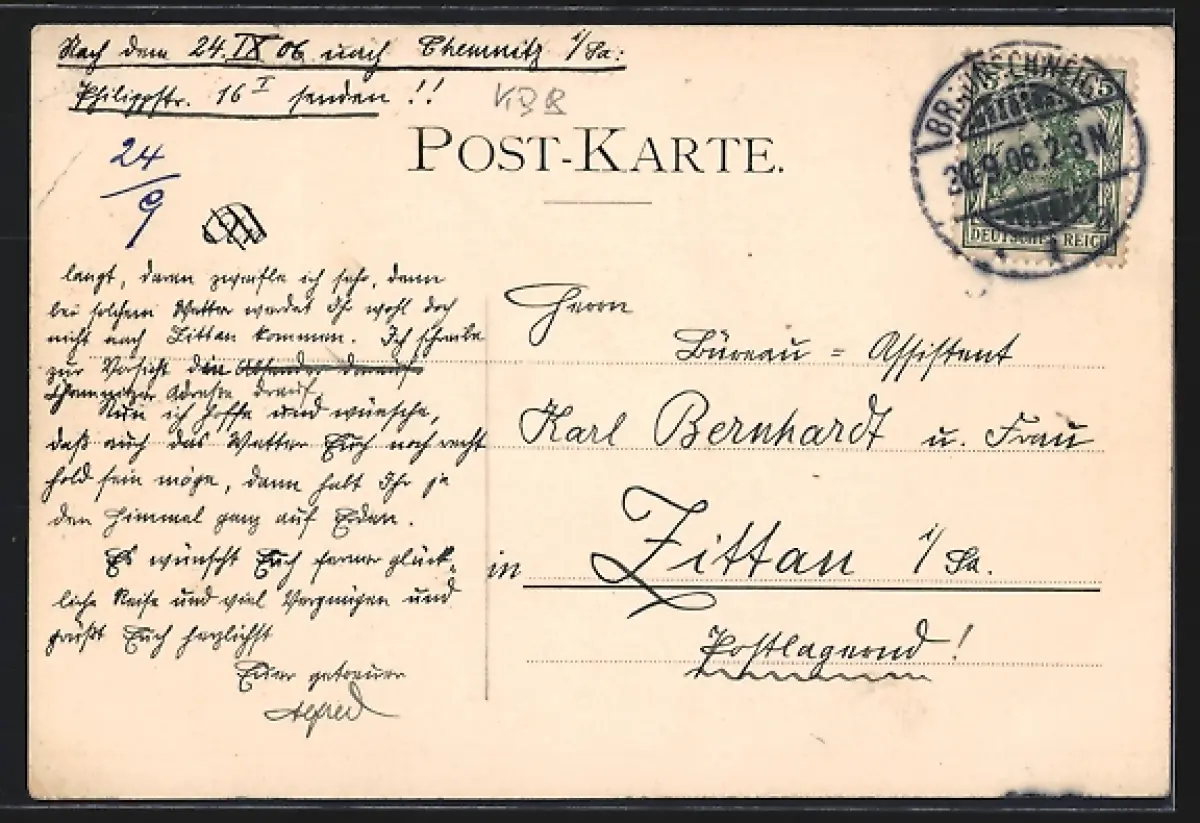 Nach dem 24.IX 06 nach Chemnitz i/Sa:
Philippstr. 16 I senden!!
POST-KARTE.
24/9
BRAUNSCHWEIG
20.9.06.2-3N
DEUTSCHES REICH
langt, daran zweifle ich sehr, denn
bei solchem Wetter werdet Ihr wohl doch
nicht nach Zittau kommen. Ich schreibe
zur Vorsicht die Absender darauf
Chemnitzer Adresse drauf.
Nun ich hoffe und wünsche,
daß auch das Wetter Euch noch recht
hold sein möge, dann habt Ihr ja
den Himmel ganz auf Erden.
Es wünscht Euch ferner glück-
liche Reise und viel Vergnügen und
grüßt Euch herzlichst
Euer getreuer
Alfred
Herrn
Büreau = Assistent
Karl Bernhardt u. Frau
in Zittau i/Sa.
Postlagernd!